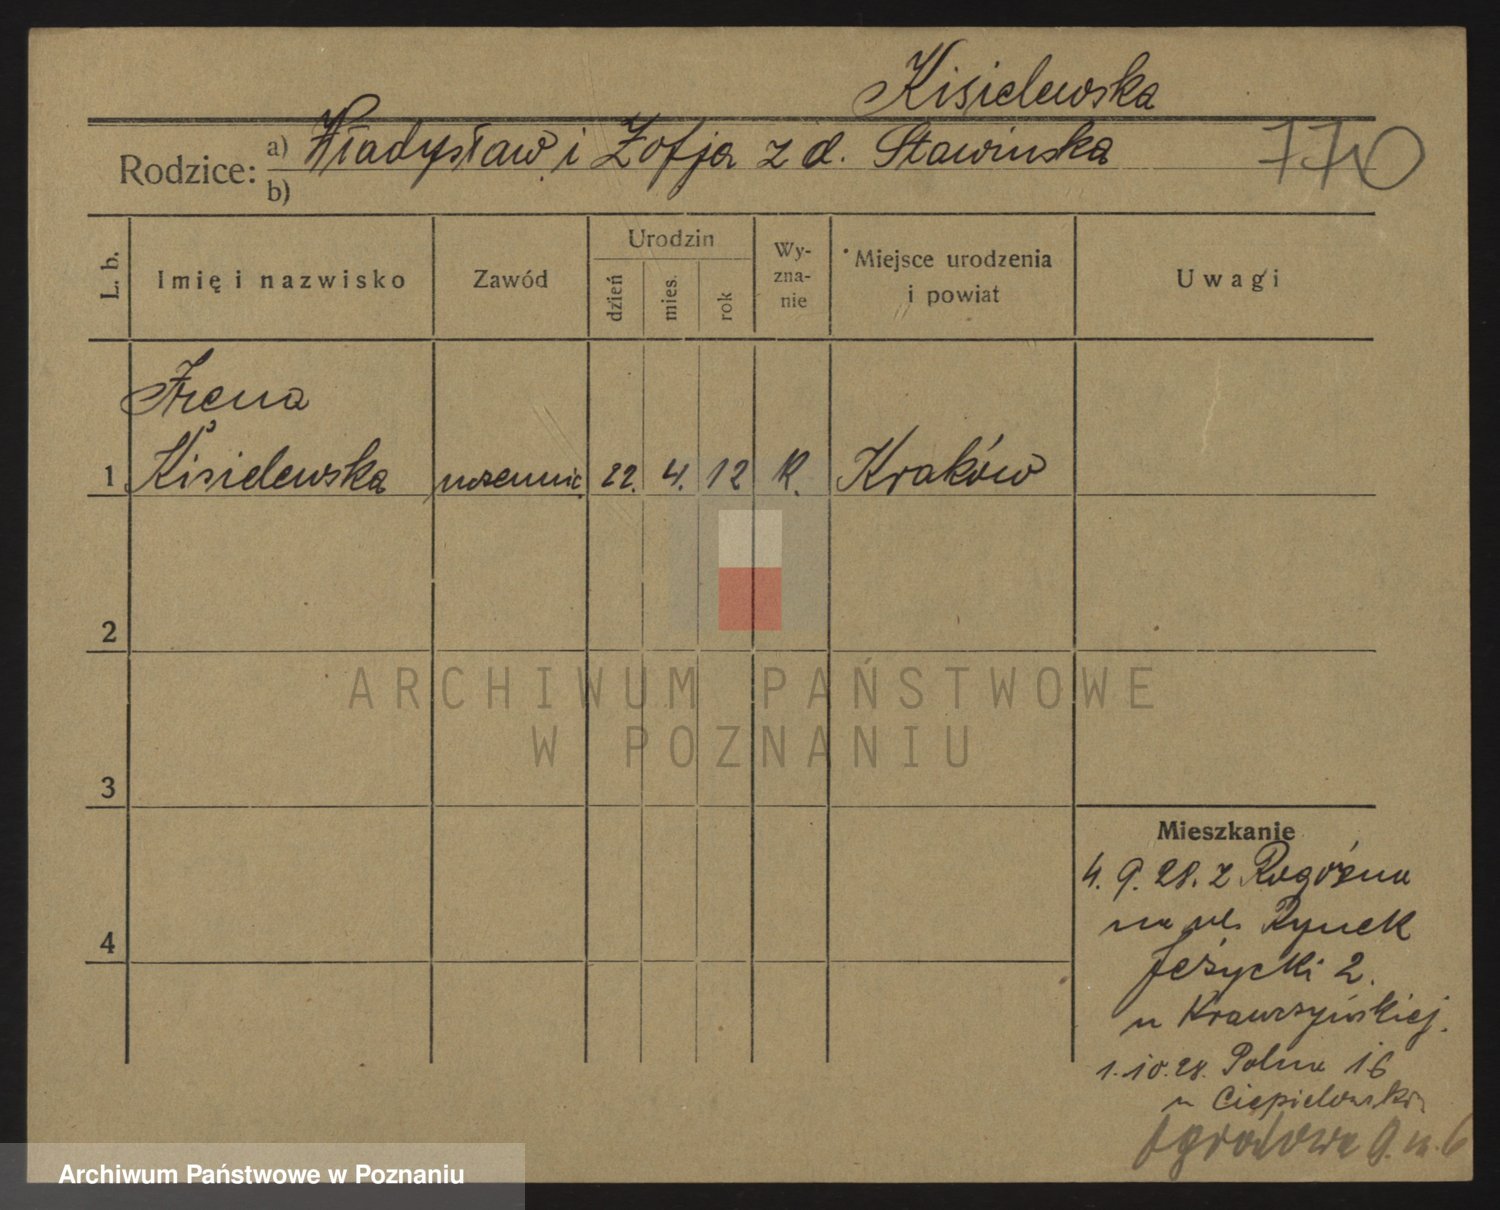 Kisielewska
770
Rodzice: a) Władysław i Zofja z d. Stawinska
b)
L. b. Imię i nazwisko Zawód Urodzin dzień mies. rok Wy-zna-nie Miejsce urodzenia i powiat Uwagi
Irena
1 Kisielewska uczennic. 22. 4. 12 R. Kraków
2
3
4
Mieszkanie
4. 9. 28. z Rogóźna
na ul. Rynek
Jeżycki 2.
u Krawczyńskiej.
1. 10. 28. Polna 16
u Ciepielowski
Ogrodowa 9. m. 6
ARCHIWUM PAŃSTWOWE
W POZNANIU
Archiwum Państwowe w Poznaniu